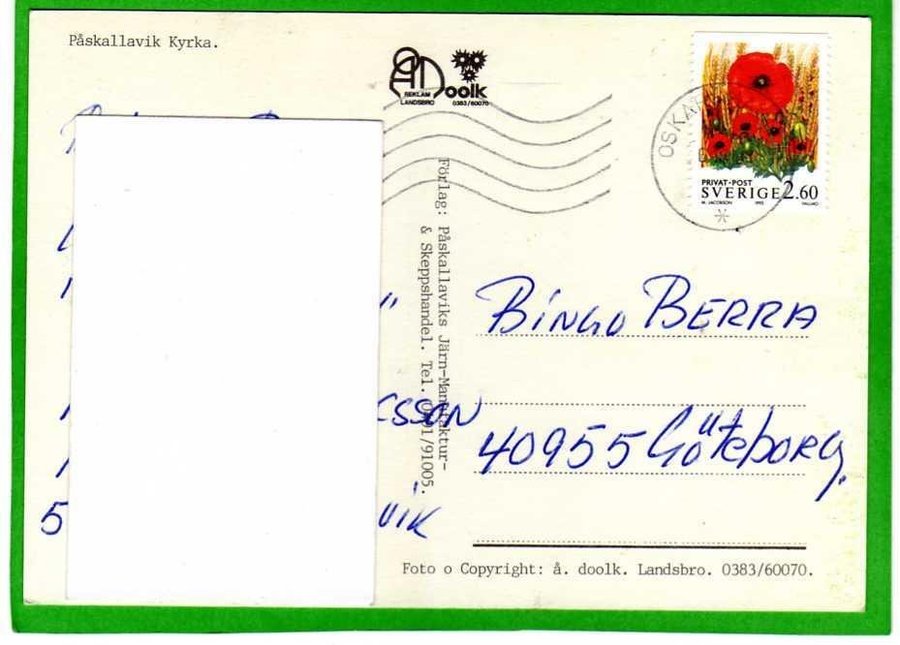 Påskallavik Kyrka.
REKLAM
LANDSBRO
doolk
0383/60070
OSKA
PRIVAT-POST
SVERIGE 2.60
M. JACOBSON
Förlag: Påskallaviks Järn-Manufaktur-
& Skeppshandel. Tel. 0491/91005.
BINGO BERRA
CSSON
40955 Göteborg.
5
VIK
Foto o Copyright: å. doolk. Landsbro. 0383/60070.